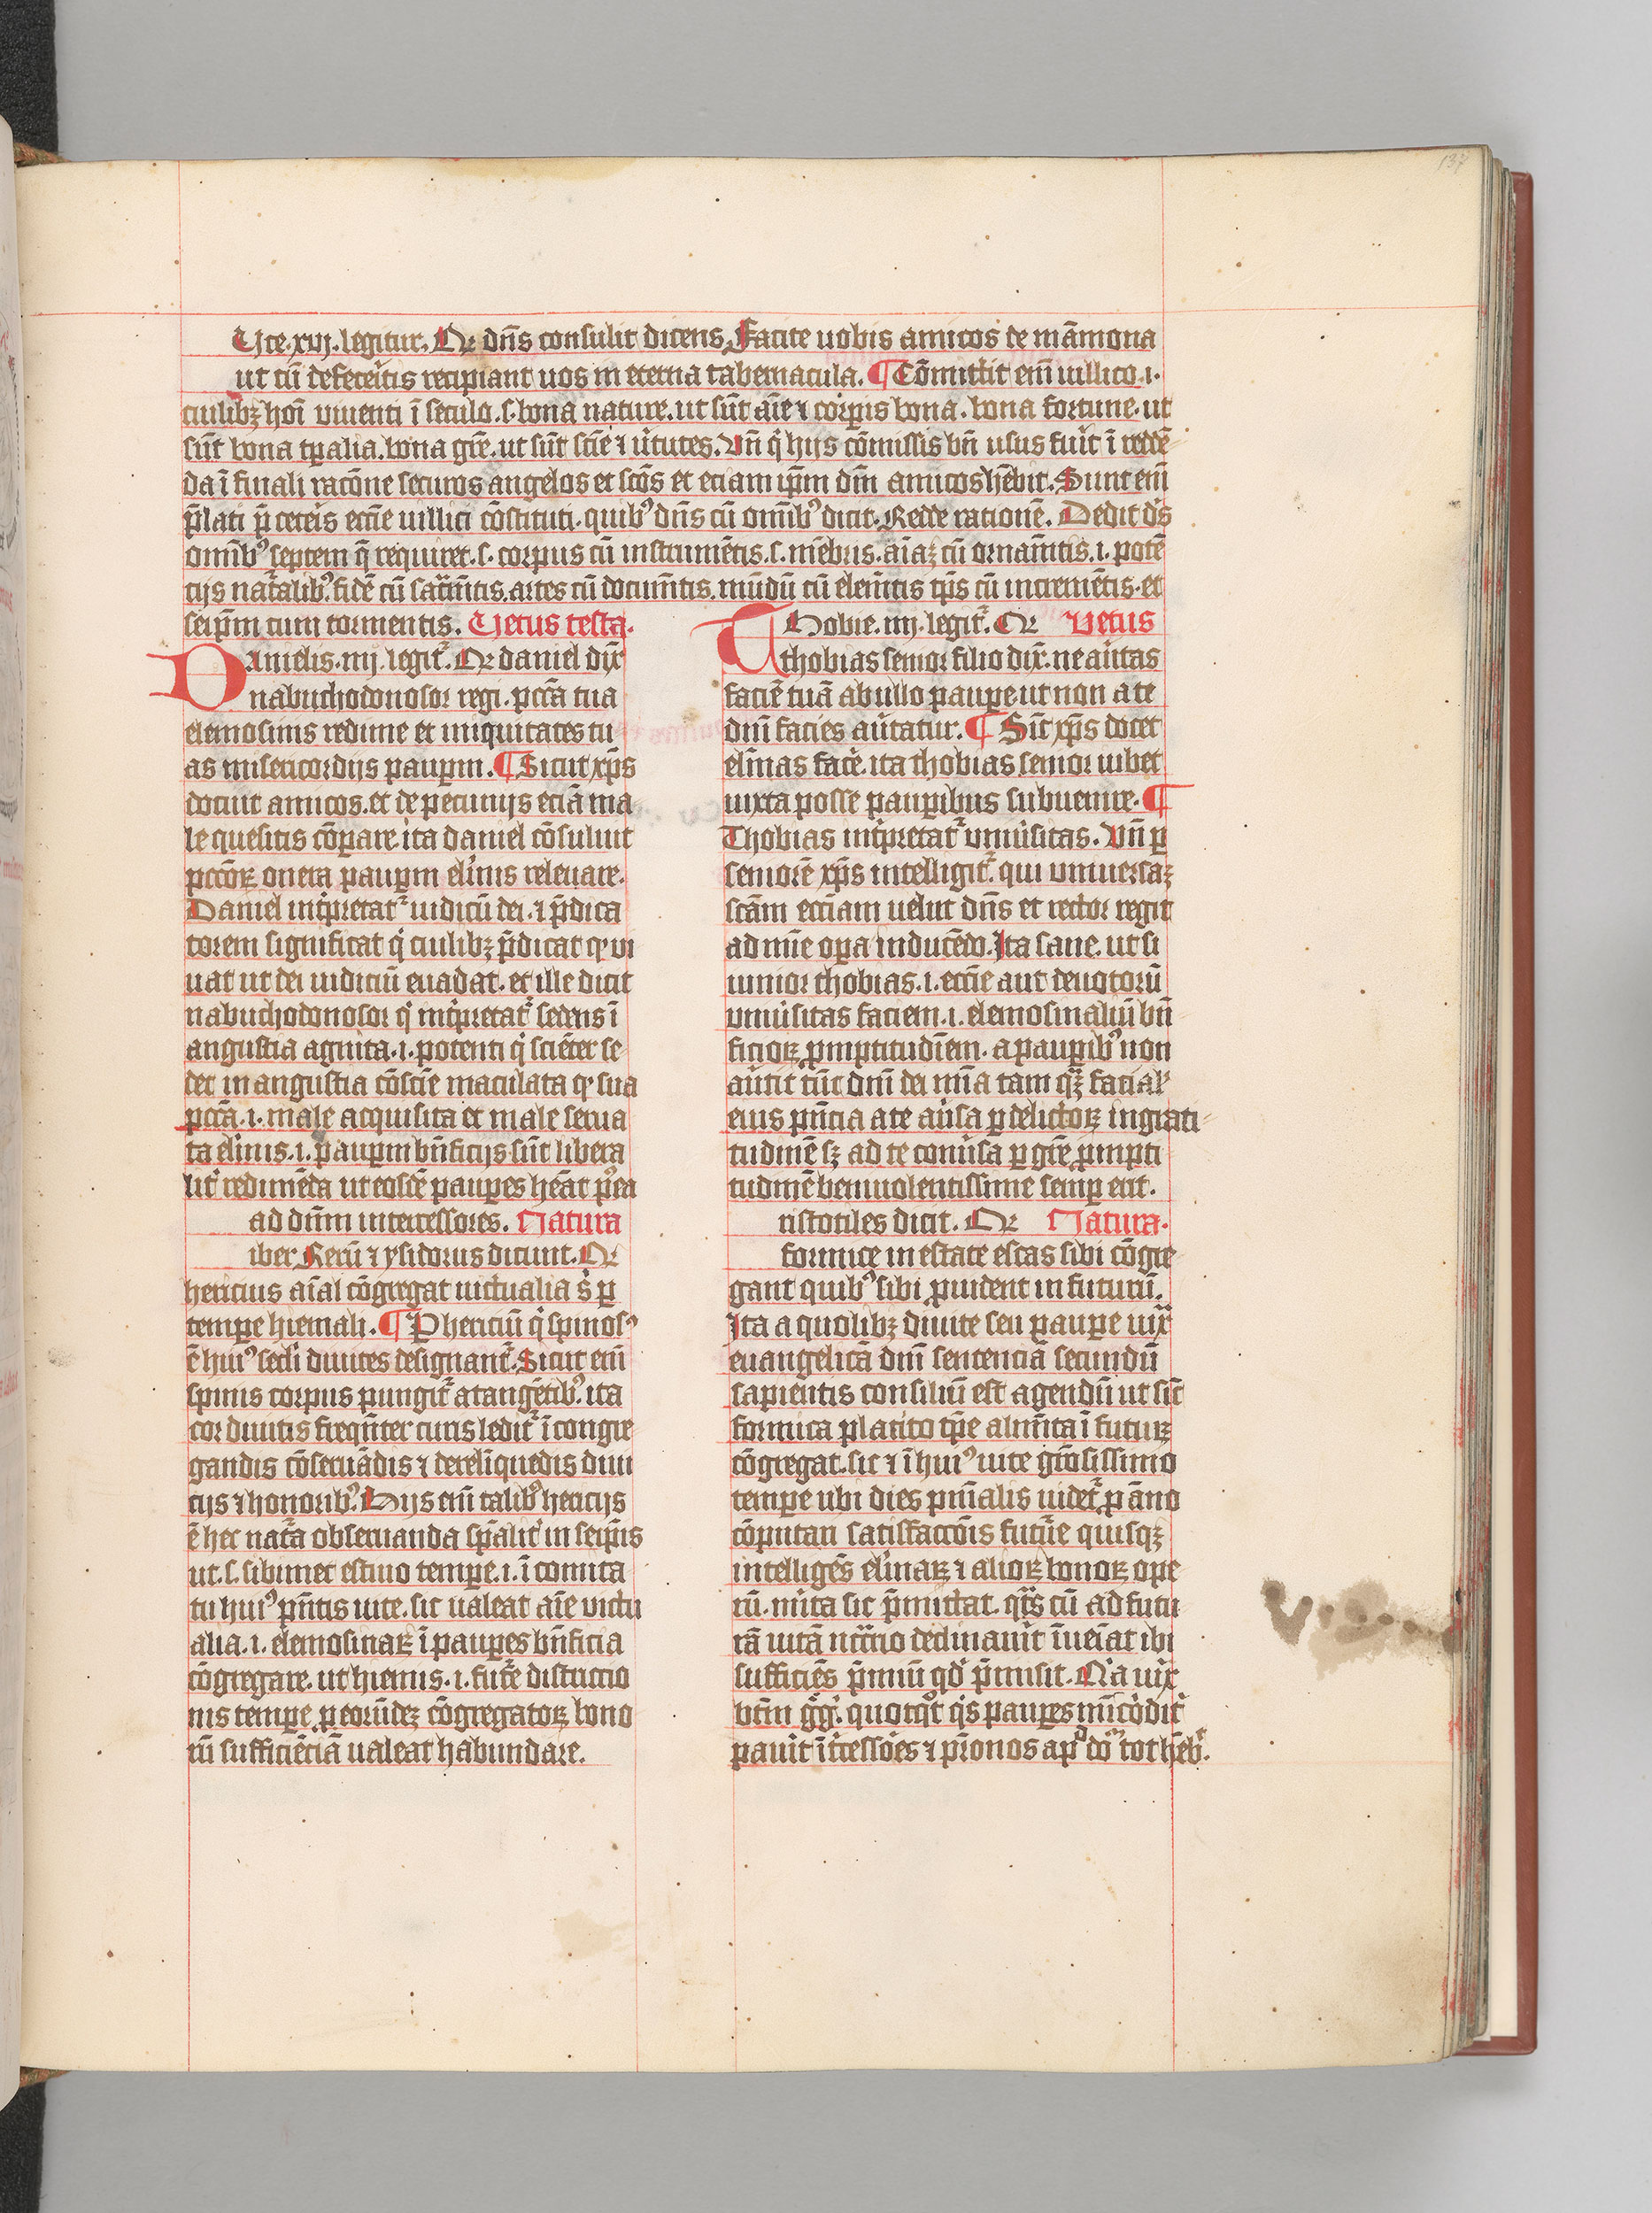 137
Uce. xvj. legitur. Qr dn̄s consulit dicens. Facite uobis amicos de mām̄ona
ut cū defeceitis recipiant uos in eterna tabernacula. ¶ Cōmittit em̄ uillico .i.
cuilibꝫ hoī viventi ī seculo .s. bona nature. ut sūt aīe ⁊ corꝑis bona. bona fortune. ut
sūt bona tꝑalia. bona gr̄e. ut sūt scīe ⁊ u̓tutes. Vn̄ q̇ hijs cōmissis bn̄ usus fuīt ī redē
da ī finali racōne securos angelos et scōs et eciam ip̄m dn̄m amicos hēbit. Sunt em̄
p̄lati p̄ ceteris ecc̄ie uillici cōstituti. quibꝰ dn̄s cū omībꝰ dicit. Redde rationē. Dedit d̓s
omībꝰ septem q̄ requiret .s. corpus cū instrumētis .s. mēbris. aīaꝫ cū ornam̄tis .i. potē
cijs nat̄alibꝰ. fidē cū sacr̄am̄tis. artes cū docum̄tis. mūdū cū elem̄tis tp̄s cū incremētis. et
seip̄m cum tormentis. Vetus testa.
Danielis. iiij. legit᷑. Qr daniel dix̄
nabuchodonosor regi. pccā tua
elemosinis redime et iniquitates tu
as misericordijs pauꝑm. ¶ Sicut xp̄s
docuit amicos. et de pecunijs eciā ma
le quesitis cōꝑare. ita daniel cōsuluit
pccōꝝ onera pauꝑm elīnis releuare.
Daniel int̓pretat᷑ iudiciū dei. ⁊ p̄dica
torem significat q̇ cuilibꝫ p̄dicat qꝫ ui
uat ut dei iudiciū euadat. et ille dicit
nabuchodonosor q̇ int̓pretat᷑ sedens ī
angustia agnita .i. potenti q̇ sciēter se
det in angustia cōsciē maculata qꝫ sua
pccā .i. male acquisita et male serua
ta elīnis .i. pauꝑm bn̄ficijs sūt libera
lit̓ redimēda ut eosdē pauꝑes hēāt pꝰea
ad dūm intercessores. Natura
iber Rerū ⁊ ysidorus dicunt. Qr
hericius aīal cōgregat uictualia s̄ ꝑ
temꝑe hiemali. ¶ P hericiū q̇ spinosꝰ
ē huiꝰ sec̄li diuites designant᷑. Sicut em̄
spinis corpus pungit᷑ atangētibꝰ. ita
cor diuitis freqn̄ter curis ledit᷑ ī congre
gandis cōseruādis ⁊ derelīquēdis diui
cijs ⁊ honoribꝰ. Hijs em̄ talibꝰ hericijs
ē hec nat̄a obseruanda sp̄alit̓ in seip̄is
ut .s. sibimet estiuo temꝑe .i. ī comita
tu huiꝰ pn̄tis uite. sic ualeat aīe victu
alia .i. elemosinaꝝ ī pauꝑes bn̄ficia
cōgregare. ut hiemis .i. fut̄e districtio
nis temꝑe ꝑ eorūdeꝫ cōgregatoꝝ bono
rū sufficiēciā ualeat habundare.
Thobie. iiij. legit᷑. Qr Vetus
thobias senior filio dix̄. ne au̓tas
faciē tuā ab ullo pauꝑe ut non a te
dn̄i facies au̓tatur. ¶ Sic̄ xp̄s docet
elīnas face̓. ita thobias senior iubet
iuxta posse pauꝑibus subuenire. ¶
Thobias int̓pretat᷑ uniu̓sitas. Vn̄ ꝑ
seniorē xp̄s intelligit᷑. qui uniuersaꝫ
scām ecciam uelut dn̄s et rector regit
ad mīe oꝑa inducēdo. Ita sane. ut si
iunior thobias .i. ecc̄ie aut deuotorū
uniu̓sitas faciem .i. elemosinaliū bn̄
ficioꝝ ꝓmptitudīem. a pauꝑibꝰ non
au̓tit tūc dn̄i dei mīa tam qꝫ facial̓
eius pn̄cia a te au̓sa ꝑ delictoꝝ ingrati
tudinē sꝫ ad te conu̓sa ꝑ gr̄e ꝓmpti
tudinē beniuolentissime semꝑ erit.
ristotiles dicit. Qr Natura.
formice in estate escas sibi cōgre
gant quibꝰ sibi ꝓuident in futurū.
Ita a quolibꝫ diuite seu pauꝑe iux̄
euangelicā dn̄i sentenciā secundū
sapientis consiliū est agendū ut sic̄
formica placito tꝑe alim̄ta ī futuꝝ
cōgregat. sic ⁊ ī huiꝰ uite gr̄osissimo
temꝑe ubi dies pn̄ialis uidet᷑ ꝑ āno
cōputari satisfaccōis future quisqꝫ
intelligēs elīnaꝝ ⁊ alioꝝ bonoꝝ oꝑe
rū. mīta sic p̄mittat. q̄t̓s cū ad futu
rā uitā declinau̓it īueīat ibi
sufficiēs p̄miū qd̓ p̄misit. Nā iux̄
btm̄ gg̓. quotqt̓ q̇s pauꝑes mīcōdit̓
pau̓it īt̓cessores ⁊ pr̄onos apd̓ do᷑ tot hēb̓.